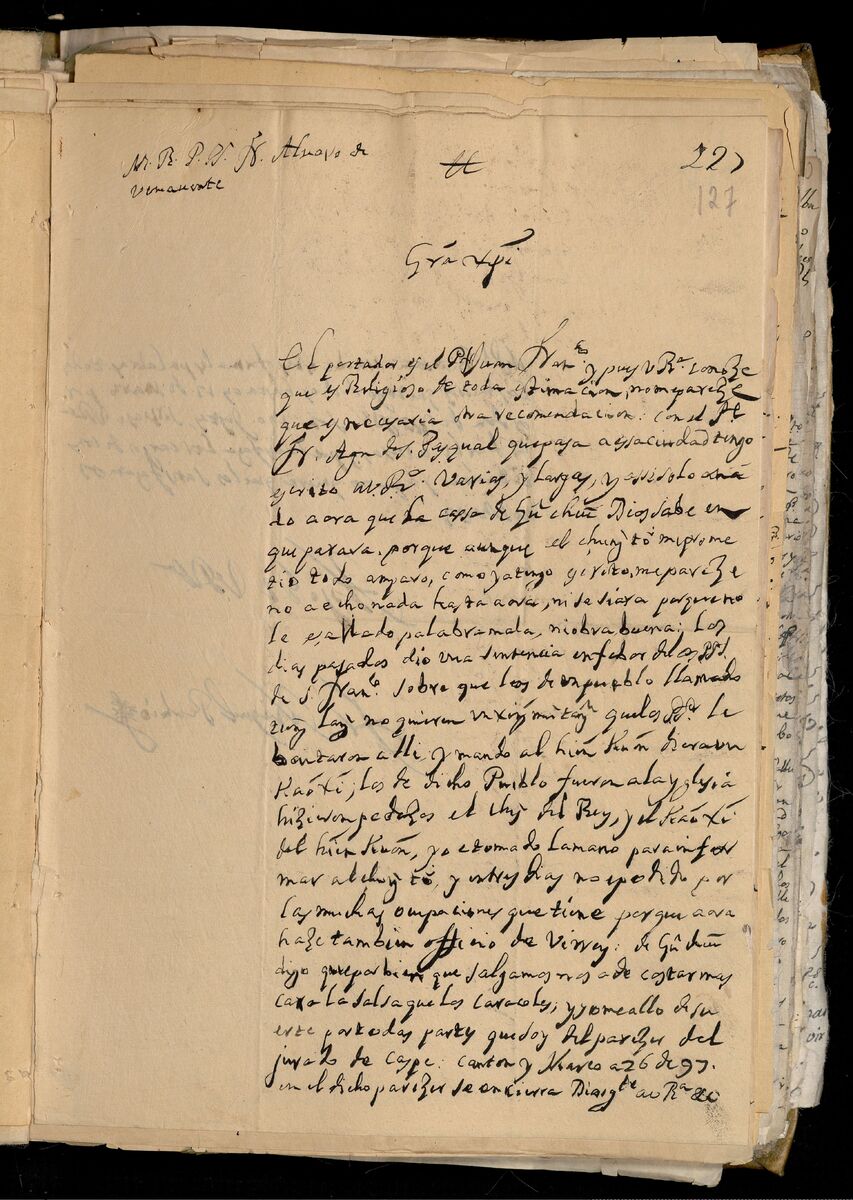 M. R. P. N. Fr. Alvaro de
Venauente
227
127
Grã xpi
El portador es el P. Juan Franco y pues V Ra. conoze
que es Religioso de toda estimacion, nomepareze
que es necesaria otra recomendacion: con el Pe.
Fr. Agn de S. Pasqual quepasa aessaciudad tengo
escrito a V. Ra. varias, y largas, y assi solo aña
do aora que la cassa de Gũ chũ Dios sabe en
que parara. porque aunque el chung tô mepreme
tio todo amparo, como ya tengo escrito, mepareze
no a echo nada hasta aora, ni se si ara porque no
le e sacado palabra mala, ni obra buena; los
dias pasados dio una sentencia enfabor de los PPs.
de S. Franco. sobre que los de un pueblo llamado
no quieren que los Ps. le
bantaron alli, y mando al hien Kuon diera un
Kao Xi; los de dicho Pueblo fueron a la yglesia
hizieron pedazos el chi del Rey, y el Kao Xi
del hien Kuon, yo e tomado la mano para infor
mar al chung tô, y en tres dias no e podido por
las muchas ocupaciones que tiene porque aora
haze tambien officio de Virrey: de Gũ chũ
digo que por bien que salgamos nos a de costar mas
cara la salsa que los caracoles; y yo me allo de su
erte por todas partes que soy del parezer del
jurado de Caspe. Canton y Março a 26 de 97.
en el dicho parezer se encierra Dios gde a V Ra